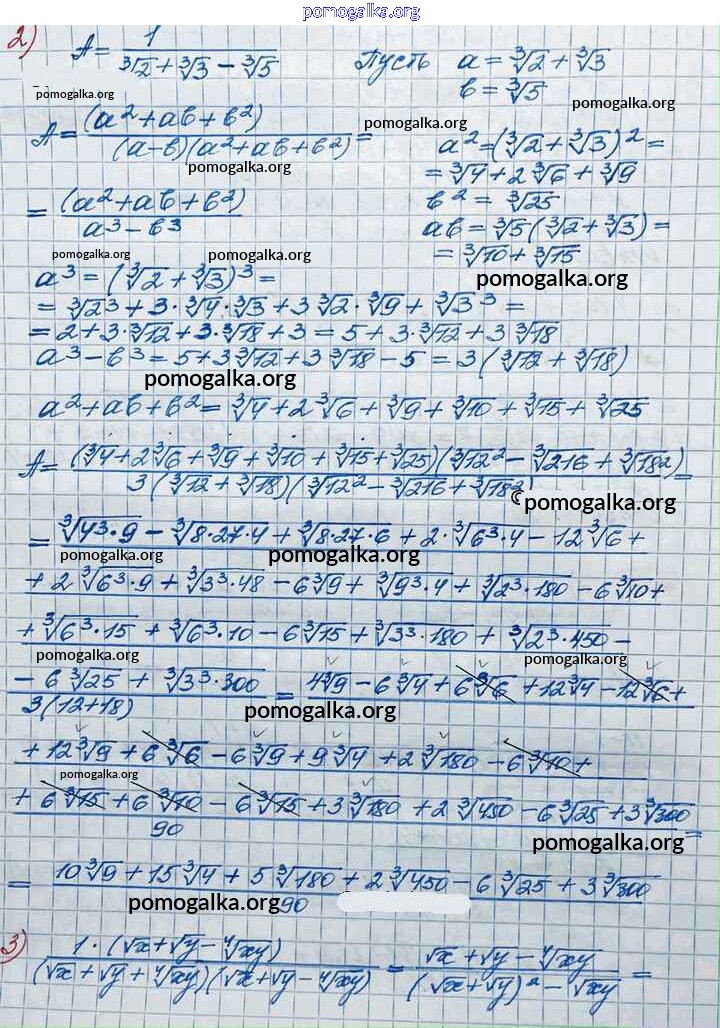 pomogalka.org
2) A = 1/(∛2 + ∛3 − ∛5) Пусть a = ∛2 + ∛3
b = ∛5
pomogalka.org
pomogalka.org
A = (a² + ab + b²)/((a−b)(a² + ab + b²)) =
pomogalka.org
a² = (∛2 + ∛3)² =
pomogalka.org
= ∛4 + 2∛6 + ∛9
= (a² + ab + b²)/(a³ − b³)
b² = ∛25
ab = ∛5(∛2 + ∛3) =
= ∛10 + ∛15
pomogalka.org
pomogalka.org
pomogalka.org
a³ = (∛2 + ∛3)³ =
= ∛2³ + 3·∛4·∛3 + 3∛2·∛9 + ∛3³ =
= 2 + 3·∛12 + 3·∛18 + 3 = 5 + 3·∛12 + 3∛18
a³ − b³ = 5 + 3∛12 + 3∛18 − 5 = 3(∛12 + ∛18)
pomogalka.org
a² + ab + b² = ∛4 + 2∛6 + ∛9 + ∛10 + ∛15 + ∛25
A = (∛4 + 2∛6 + ∛9 + ∛10 + ∛15 + ∛25)(∛12² − ∛216 + ∛18²)/(3(∛12 + ∛18)(∛12² − ∛216 + ∛18²)) =
pomogalka.org
= ∛(4³·9) − ∛(8·27·4) + ∛(8·27·6) + 2·∛(6³·4) − 12∛6 +
pomogalka.org
pomogalka.org
+ 2∛(6³·9) + ∛(3³·48) − 6∛9 + ∛(9³·4) + ∛(2³·180) − 6∛10 +
+ ∛(6³·15) + ∛(6³·10) − 6∛15 + ∛(3³·180) + ∛(2³·450) −
pomogalka.org
pomogalka.org
− 6∛25 + ∛(3³·300) / 3(12+18) = 4∛9 − 6∛4 + 6∛6 + 12∛4 − 12∛6 +
pomogalka.org
+ 12∛9 + 6∛6 − 6∛9 + 9∛4 + 2∛180 − 6∛10 +
pomogalka.org
+ 6∛15 + 6∛10 − 6∛15 + 3∛180 + 2∛450 − 6∛25 + 3∛300 / 90 =
pomogalka.org
= (10∛9 + 15∛4 + 5∛180 + 2∛450 − 6∛25 + 3∛300)/90
pomogalka.org
3) 1·(√x + √y − ⁴√xy)/((√x + √y + ⁴√xy)(√x + √y − ⁴√xy)) = (√x + √y − ⁴√xy)/((√x + √y)² − √xy) =